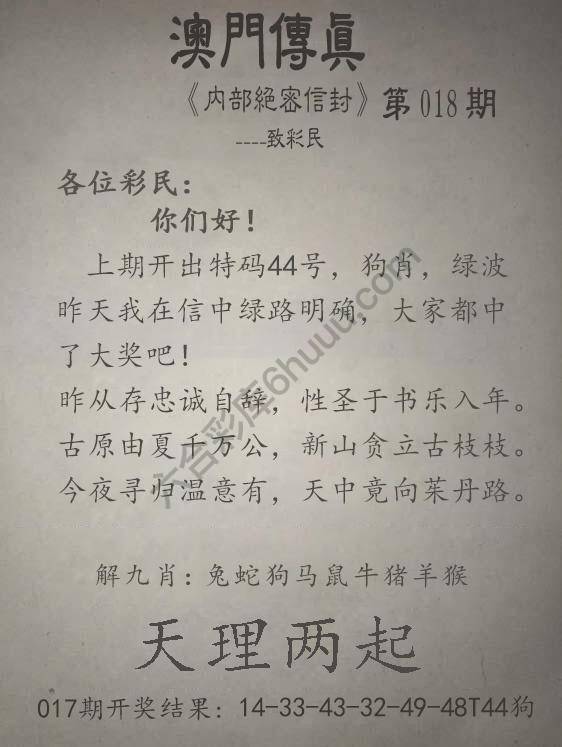 澳門傳真
《内部絕密信封》第018期
----致彩民
各位彩民：
你们好！
上期开出特码44号，狗肖，绿波
昨天我在信中绿路明确，大家都中
了大奖吧！
昨从存忠诚自辞，性圣于书乐入年。
古原由夏千万公，新山贪立古枝枝。
今夜寻归温意有，天中竟向茱丹路。
解九肖：兔蛇狗马鼠牛猪羊猴
天理两起
017期开奖结果：14-33-43-32-49-48T44狗
六合彩库6huuu.com